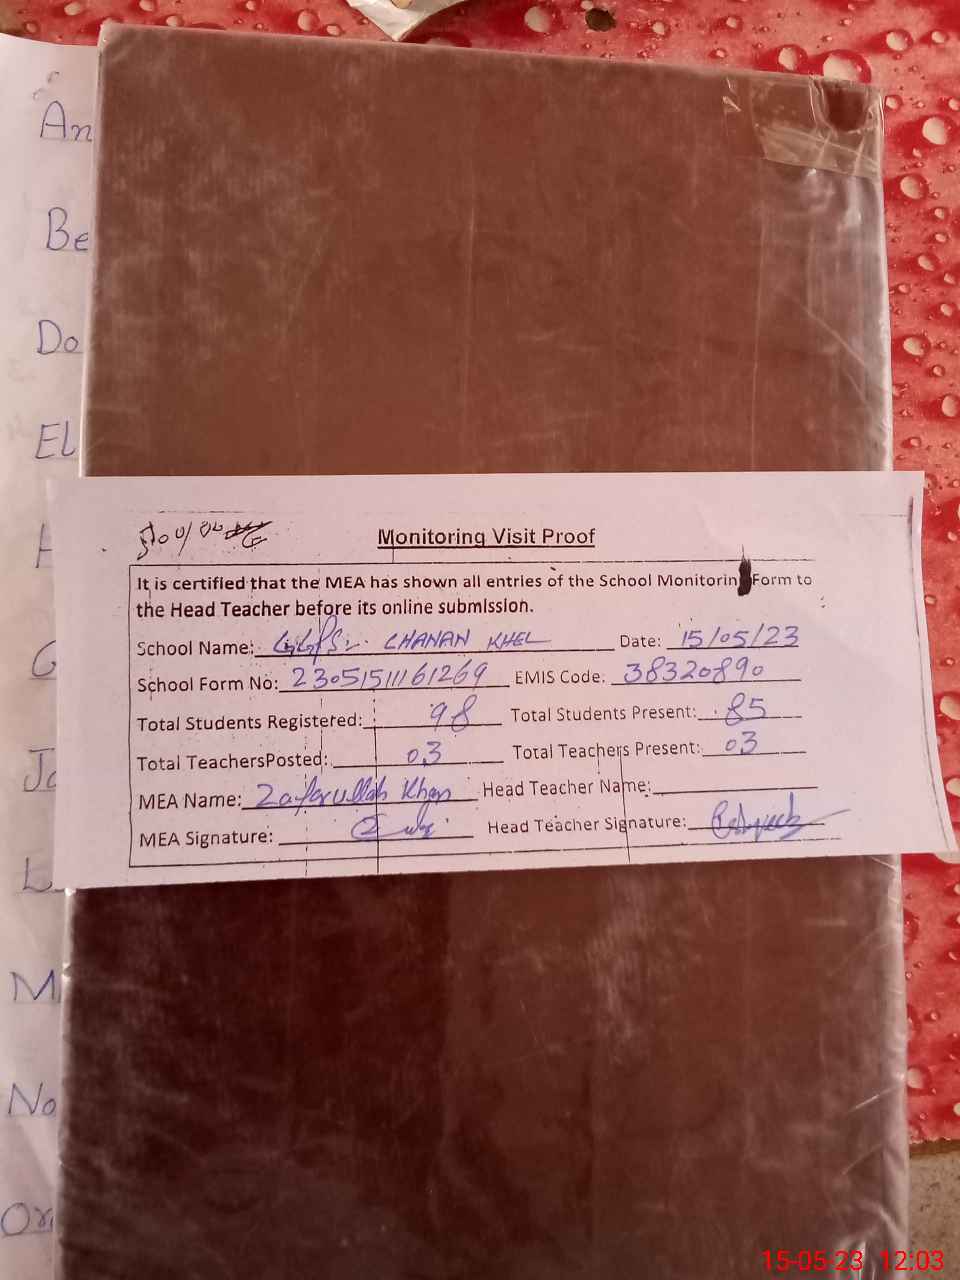 An
Be
Do
El
Monitoring Visit Proof
It is certified that the MEA has shown all entries of the School Monitorin Form to
the Head Teacher before its online submission.
School Name: GGPS: CHANAN KHEL Date: 15/05/23
School Form No: 23051511161269 EMIS Code: 38320890
Total Students Registered: 98 Total Students Present: 85
Total TeachersPosted: 03 Total Teachers Present: 03
MEA Name: Zafarullah Khan Head Teacher Name:
MEA Signature: Head Teacher Signature:
M
No
Or
15-05-23 12:03